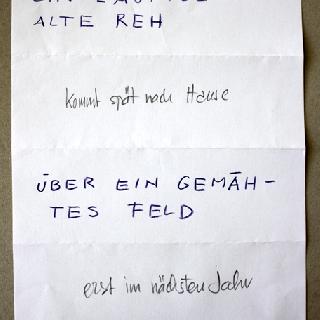 ALTE REH
kommt spät nach Hause
ÜBER EIN GEMÄH-
TES FELD
erst im nächsten Jahr